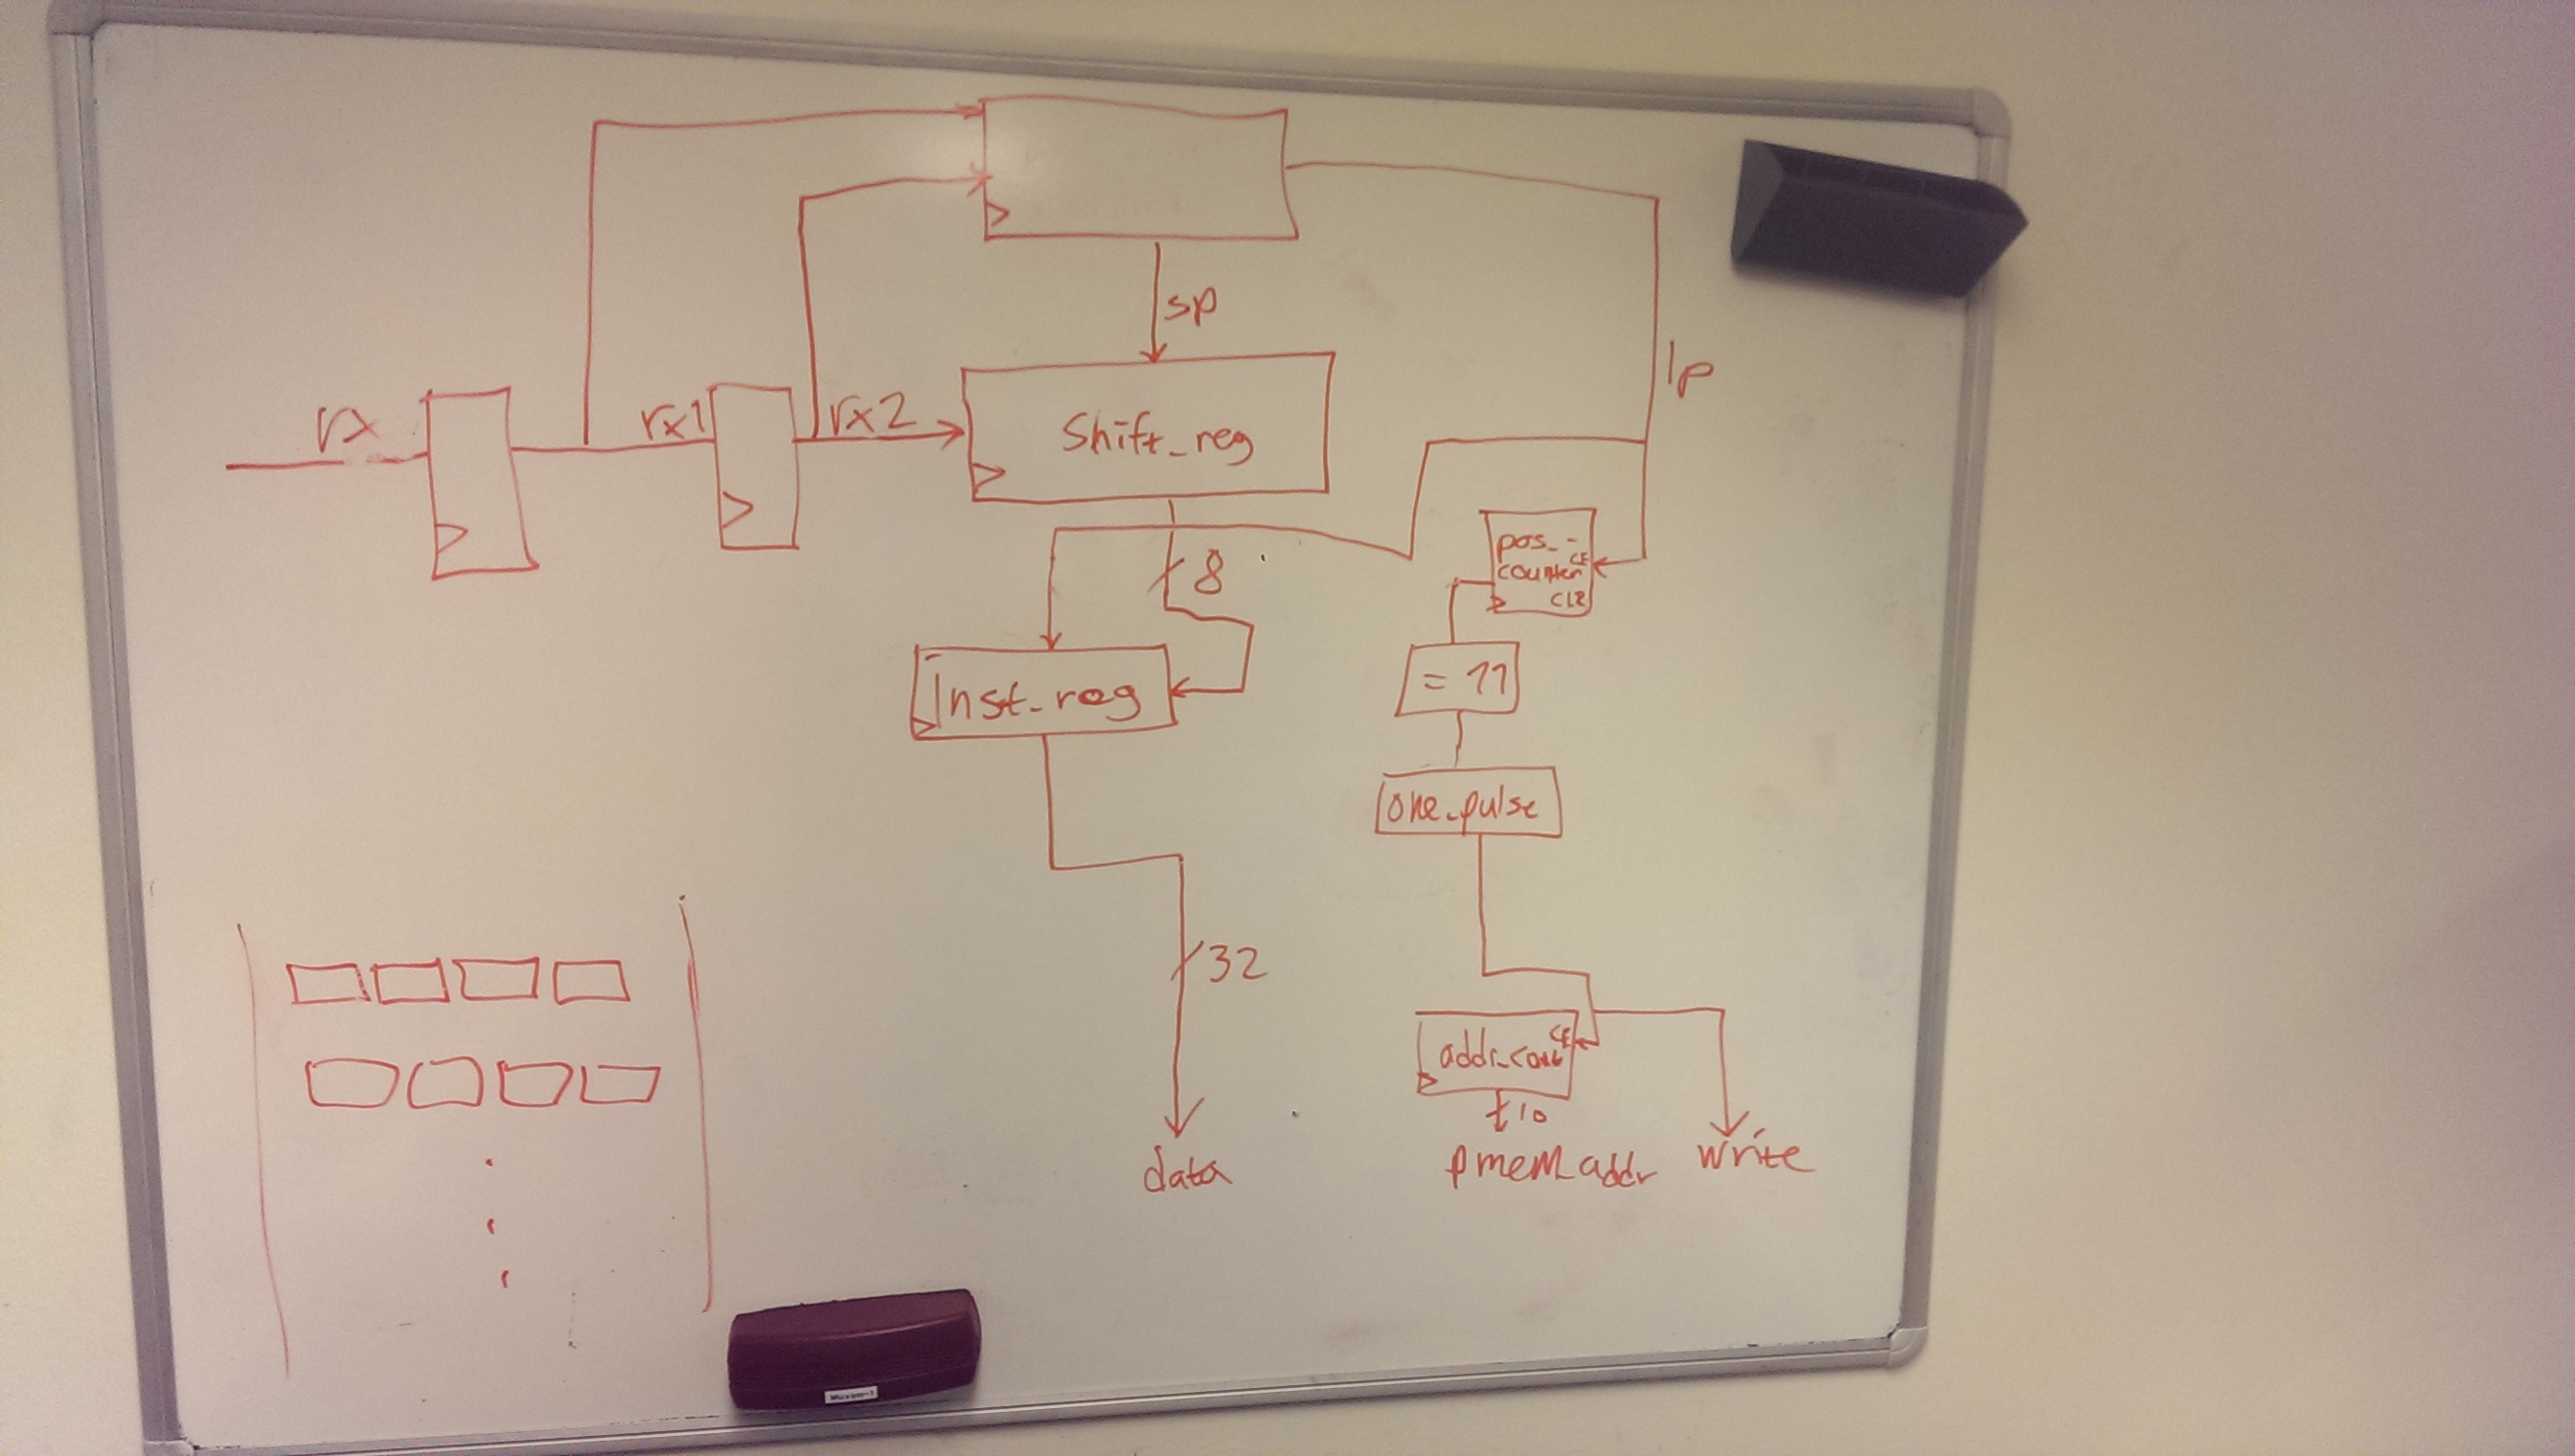 sp
lp
rx
rx1
rx2
Shift_reg
8
pos_-
counter
CE
CLR
Inst_reg
= 11
one_pulse
32
CE
10
data
pmem_addr
write